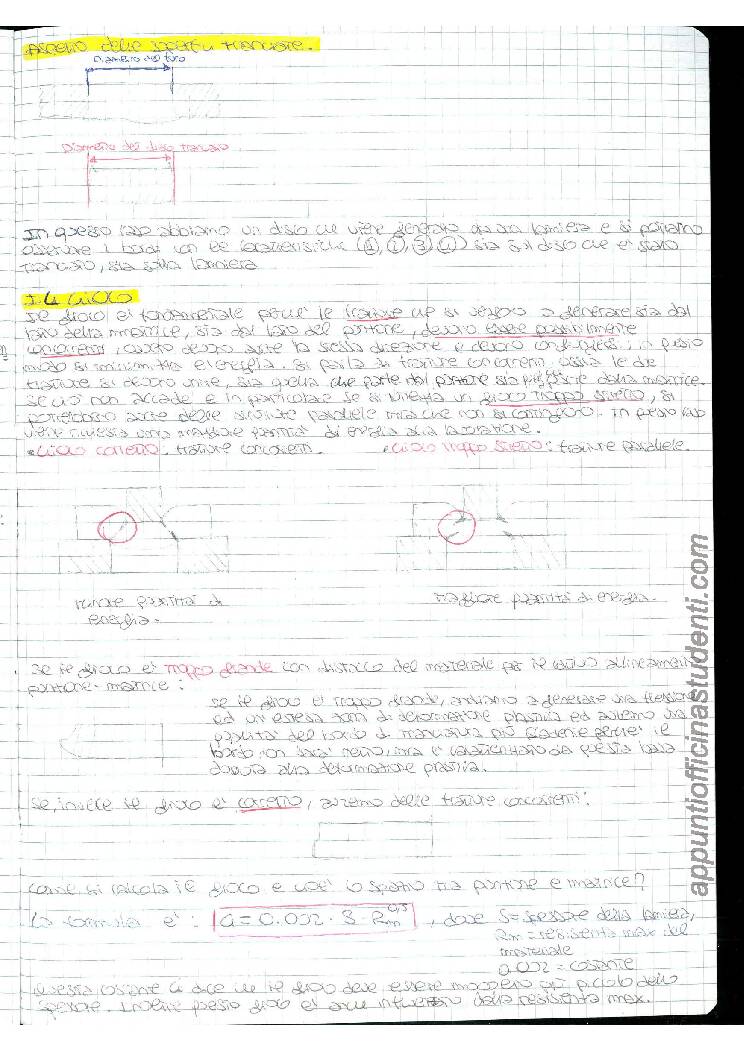 Aspetto delle superfici tranciate.
Diametro del foro
Diametro del disco tranciato
In questo caso abbiamo un disco che viene generato da una lamiera e si possono
osservare i bordi con le caratteristiche (1, 2, 3, 4) sia sul disco che è stato
tranciato, sia sulla lamiera.
IL GIOCO
Il gioco è fondamentale perché le fratture che si vengono a generare sia dal
lato della matrice, sia dal lato del punzone, devono essere possibilmente
concorrenti, cioè devono avere la stessa direzione e devono congiungersi; in questo
modo si minimizza l'energia. Si parla di fratture concorrenti ossia le due
fratture si devono unire, sia quella che parte dal punzone sia quella che parte dalla matrice.
Se ciò non accade e in particolare se si utilizza un gioco troppo stretto, si
potrebbero avere delle fratture parallele ma che non si congiungono. In questo caso
viene richiesta una maggiore quantità di energia alla lavorazione.
• Gioco corretto: fratture concorrenti. • Gioco troppo stretto: fratture parallele.
minore quantità di
energia.
maggiore quantità di energia.
Se il gioco è troppo grande con distacco del materiale per il cattivo allineamento
punzone-matrice:
Se il gioco è troppo grande, andiamo a generare una flessione
ed un'estesa zona di deformazione plastica ed avremo una
qualità del bordo di tranciatura più scadente perché il
bordo non sarà netto, ma è caratterizzato da questa bava
dovuta alla deformazione plastica.
Se, invece il gioco è corretto, avremo delle fratture concorrenti:
Come si calcola il gioco e cioè lo spazio tra punzone e matrice?
La formula è: a = 0.002 · S · Rm^0,5, dove S = spessore della lamiera,
Rm = resistenza max del
materiale
0.002 = costante
Questa costante ci dice che il gioco deve essere molto più piccolo dello
spessore. Inoltre questo gioco è anche influenzato dalla resistenza max.
appuntiofficinastudenti.com